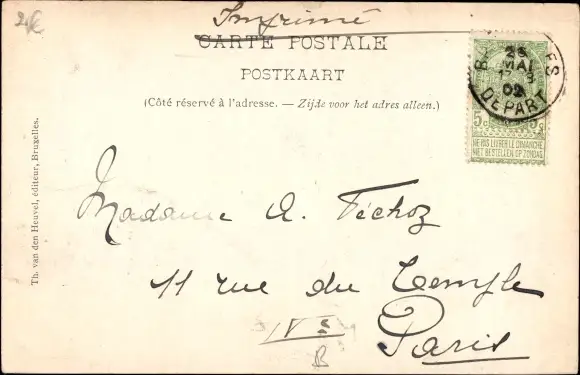 2€
Imprimé
CARTE POSTALE
POSTKAART
(Côté réservé à l'adresse. — Zijde voor het adres alleen.)
25
MAI
02
DEPART
5c 5c
NE PAS LIVRER LE DIMANCHE
NIET BESTELLEN OP ZONDAG
Th. van den Heuvel, éditeur, Bruxelles.
Madame A. Féchoz
11 rue du Temple
Paris